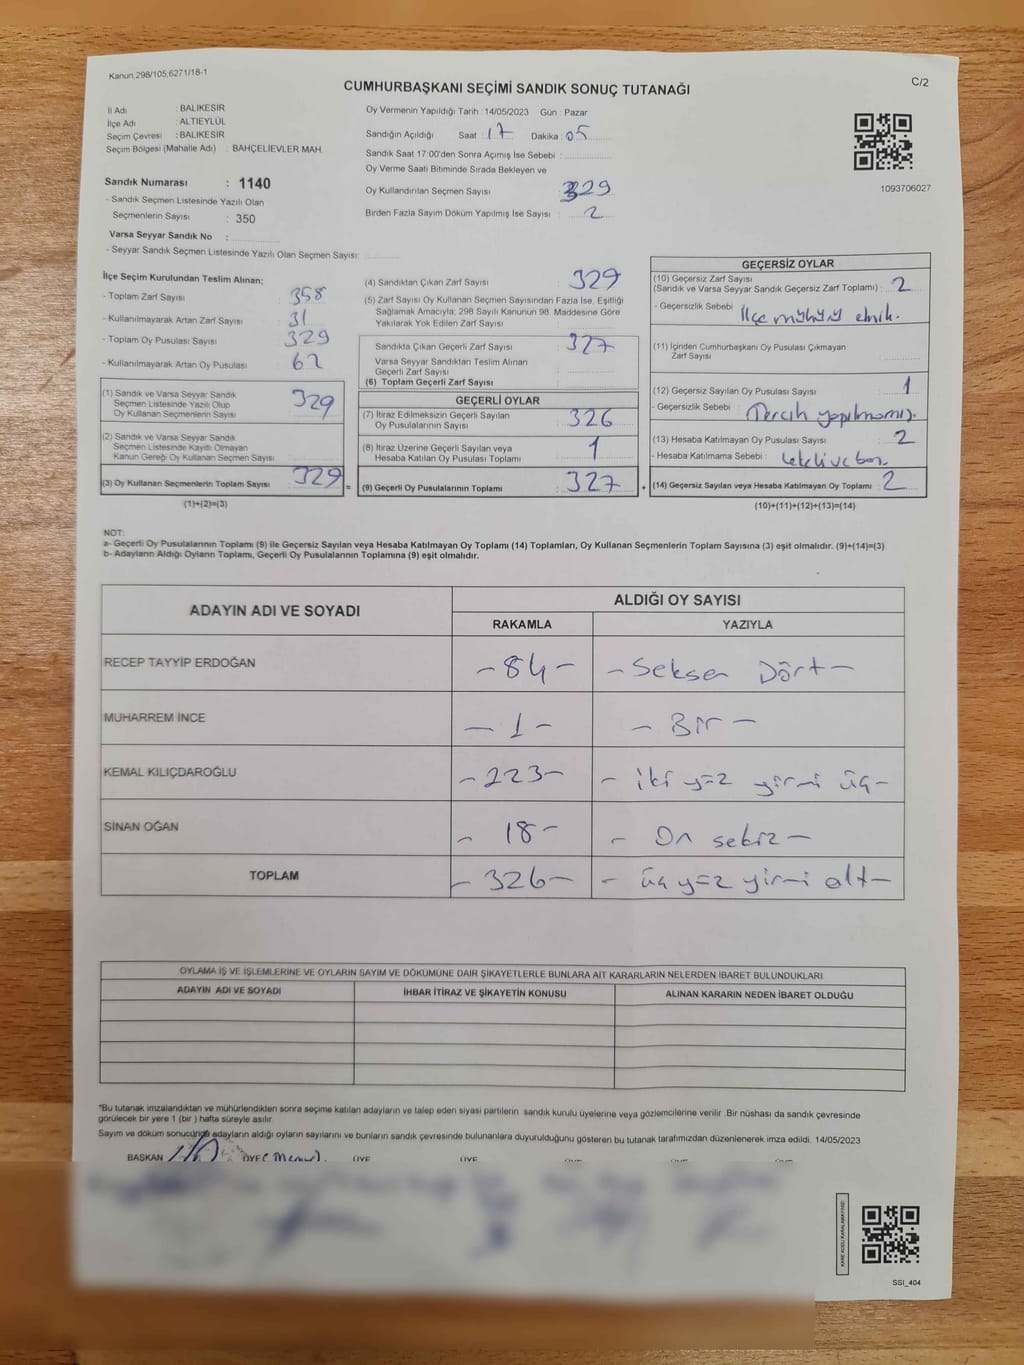 Kanun:298/105;6271/18-1
C/2
CUMHURBAŞKANI SEÇİMİ SANDIK SONUÇ TUTANAĞI
İl Adı : BALIKESİR
İlçe Adı : ALTIEYLÜL
Seçim Çevresi : BALIKESİR
Seçim Bölgesi (Mahalle Adı) : BAHÇELİEVLER MAH.
Sandık Numarası : 1140
- Sandık Seçmen Listesinde Yazılı Olan
Seçmenlerin Sayısı : 350
Varsa Seyyar Sandık No :
- Seyyar Sandık Seçmen Listesinde Yazılı Olan Seçmen Sayısı:
Oy Vermenin Yapıldığı Tarih : 14/05/2023 Gün : Pazar
Sandığın Açıldığı Saat : 17 Dakika : 05
Sandık Saat 17:00'den Sonra Açımış İse Sebebi :
Oy Verme Saati Bitiminde Sırada Bekleyen ve
Oy Kullandırılan Seçmen Sayısı 329
Birden Fazla Sayım Döküm Yapılmış İse Sayısı : 2
1093706027
İlçe Seçim Kurulundan Teslim Alınan;
- Toplam Zarf Sayısı : 358
- Kullanılmayarak Artan Zarf Sayısı : 31
- Toplam Oy Pusulası Sayısı : 329
- Kullanılmayarak Artan Oy Pusulası : 62
(1) Sandık ve Varsa Seyyar Sandık
Seçmen Listesinde Yazılı Olup
Oy Kullanan Seçmenlerin Sayısı : 329
(2) Sandık ve Varsa Seyyar Sandık
Seçmen Listesinde Kayıtlı Olmayan
Kanun Gereği Oy Kullanan Seçmen Sayısı :
(3) Oy Kullanan Seçmenlerin Toplam Sayısı : 329
(1)+(2)=(3)
(4) Sandıktan Çıkan Zarf Sayısı : 329
(5) Zarf Sayısı Oy Kullanan Seçmen Sayısından Fazla İse, Eşitliği
Sağlamak Amacıyla; 298 Sayılı Kanunun 98. Maddesine Göre
Yakılarak Yok Edilen Zarf Sayısı :
Sandıkta Çıkan Geçerli Zarf Sayısı : 327
Varsa Seyyar Sandıktan Teslim Alınan
Geçerli Zarf Sayısı :
(6) Toplam Geçerli Zarf Sayısı :
GEÇERLİ OYLAR
(7) İtiraz Edilmeksizin Geçerli Sayılan
Oy Pusulalarının Sayısı : 326
(8) İtiraz Üzerine Geçerli Sayılan veya
Hesaba Katılan Oy Pusulası Toplamı : 1
= (9) Geçerli Oy Pusulalarının Toplamı : 327 +
GEÇERSİZ OYLAR
(10) Geçersiz Zarf Sayısı
(Sandık ve Varsa Seyyar Sandık Geçersiz Zarf Toplamı) : 2
- Geçersizlik Sebebi : İlçe
(11) İçinden Cumhurbaşkanı Oy Pusulası Çıkmayan
Zarf Sayısı :
(12) Geçersiz Sayılan Oy Pusulası Sayısı : 1
- Geçersizlik Sebebi : Tercih yapılmamış.
(13) Hesaba Katılmayan Oy Pusulası Sayısı : 2
- Hesaba Katılmama Sebebi : Lekeli ve
(14) Geçersiz Sayılan veya Hesaba Katılmayan Oy Toplamı : 2
(10)+(11)+(12)+(13)=(14)
NOT:
a- Geçerli Oy Pusulalarının Toplamı (9) ile Geçersiz Sayılan veya Hesaba Katılmayan Oy Toplamı (14) Toplamları, Oy Kullanan Seçmenlerin Toplam Sayısına (3) eşit olmalıdır. (9)+(14)=(3)
b- Adayların Aldığı Oyların Toplamı, Geçerli Oy Pusulalarının Toplamına (9) eşit olmalıdır.
ADAYIN ADI VE SOYADI ALDIĞI OY SAYISI
RAKAMLA YAZIYLA
RECEP TAYYİP ERDOĞAN -84- -Seksen Dört-
MUHARREM İNCE -1- -Bir-
KEMAL KILIÇDAROĞLU -223- -iki yüz yirmi üç-
SİNAN OĞAN -18- -On sekiz-
TOPLAM -326- -üç yüz yirmi altı-
OYLAMA İŞ VE İŞLEMLERİNE VE OYLARIN SAYIM VE DÖKÜMÜNE DAİR ŞİKAYETLERLE BUNLARA AİT KARARLARIN NELERDEN İBARET BULUNDUKLARI
ADAYIN ADI VE SOYADI İHBAR İTİRAZ VE ŞİKAYETİN KONUSU ALINAN KARARIN NEDEN İBARET OLDUĞU
*Bu tutanak imzalandıktan ve mühürlendikten sonra seçime katılan adayların ve talep eden siyasi partilerin sandık kurulu üyelerine veya gözlemcilerine verilir. Bir nüshası da sandık çevresinde
görülecek bir yere 1 (bir) hafta süreyle asılır.
Sayım ve döküm sonucunda adayların aldığı oyların sayılarını ve bunların sandık çevresinde bulunanlara duyurulduğunu gösteren bu tutanak tarafımızdan düzenlenerek imza edildi. 14/05/2023
BAŞKAN ÜYE (Memur). ÜYE ÜYE ÜYE ÜYE ÜYE
SSI_404